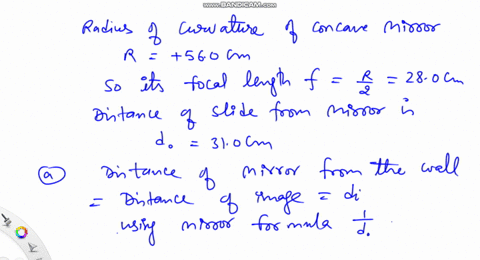 WWW.BANDICAM.COM
Radius of curvature of concave mirror
R = +56.0 cm
So its focal length f = R/2 = 28.0 cm
Distance of slide from mirror is
d₀ = 31.0 cm
(a) Distance of mirror from the wall
= Distance of image = di
using mirror formula 1/d₀